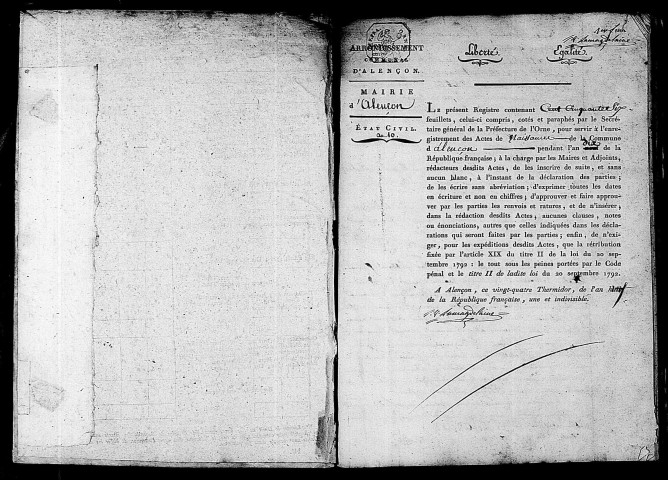 ARRONDISSEMENT
COMMUNAL
D'ALENÇON.
MAIRIE
d'Alençon
ÉTAT CIVIL.
an 10.
Liberté
Égalité
1er feuil
Lamagdelaine
LE présent Registre contenant Cent Cinquante Six
feuillets, celui-ci compris, cotés et paraphés par le Secré-
taire général de la Préfecture de l'Orne, pour servir à l'enre-
gistrement des Actes de Naissance de la Commune
d'Alençon pendant l'an dix de la
République française; à la charge par les Maires et Adjoints,
rédacteurs desdits Actes, de les inscrire de suite, et sans
aucun blanc, à l'instant de la déclaration des parties;
de les écrire sans abréviation; d'exprimer toutes les dates
en écriture et non en chiffres; d'approuver et faire approu-
ver par les parties les renvois et ratures, et de n'insérer,
dans la rédaction desdits Actes, aucunes clauses, notes
ou énonciations, autres que celles indiquées dans les décla-
rations qui seront faites par les parties; enfin, de n'exi-
ger, pour les expéditions desdits Actes, que la rétribution
fixée par l'article XIX du titre II de la loi du 20 sep-
tembre 1792: le tout sous les peines portées par le Code
pénal et le titre II de ladite loi du 20 septembre 1792.
A Alençon, ce vingt-quatre Thermidor, de l'an
de la République française, une et indivisible.
Lamagdelaine